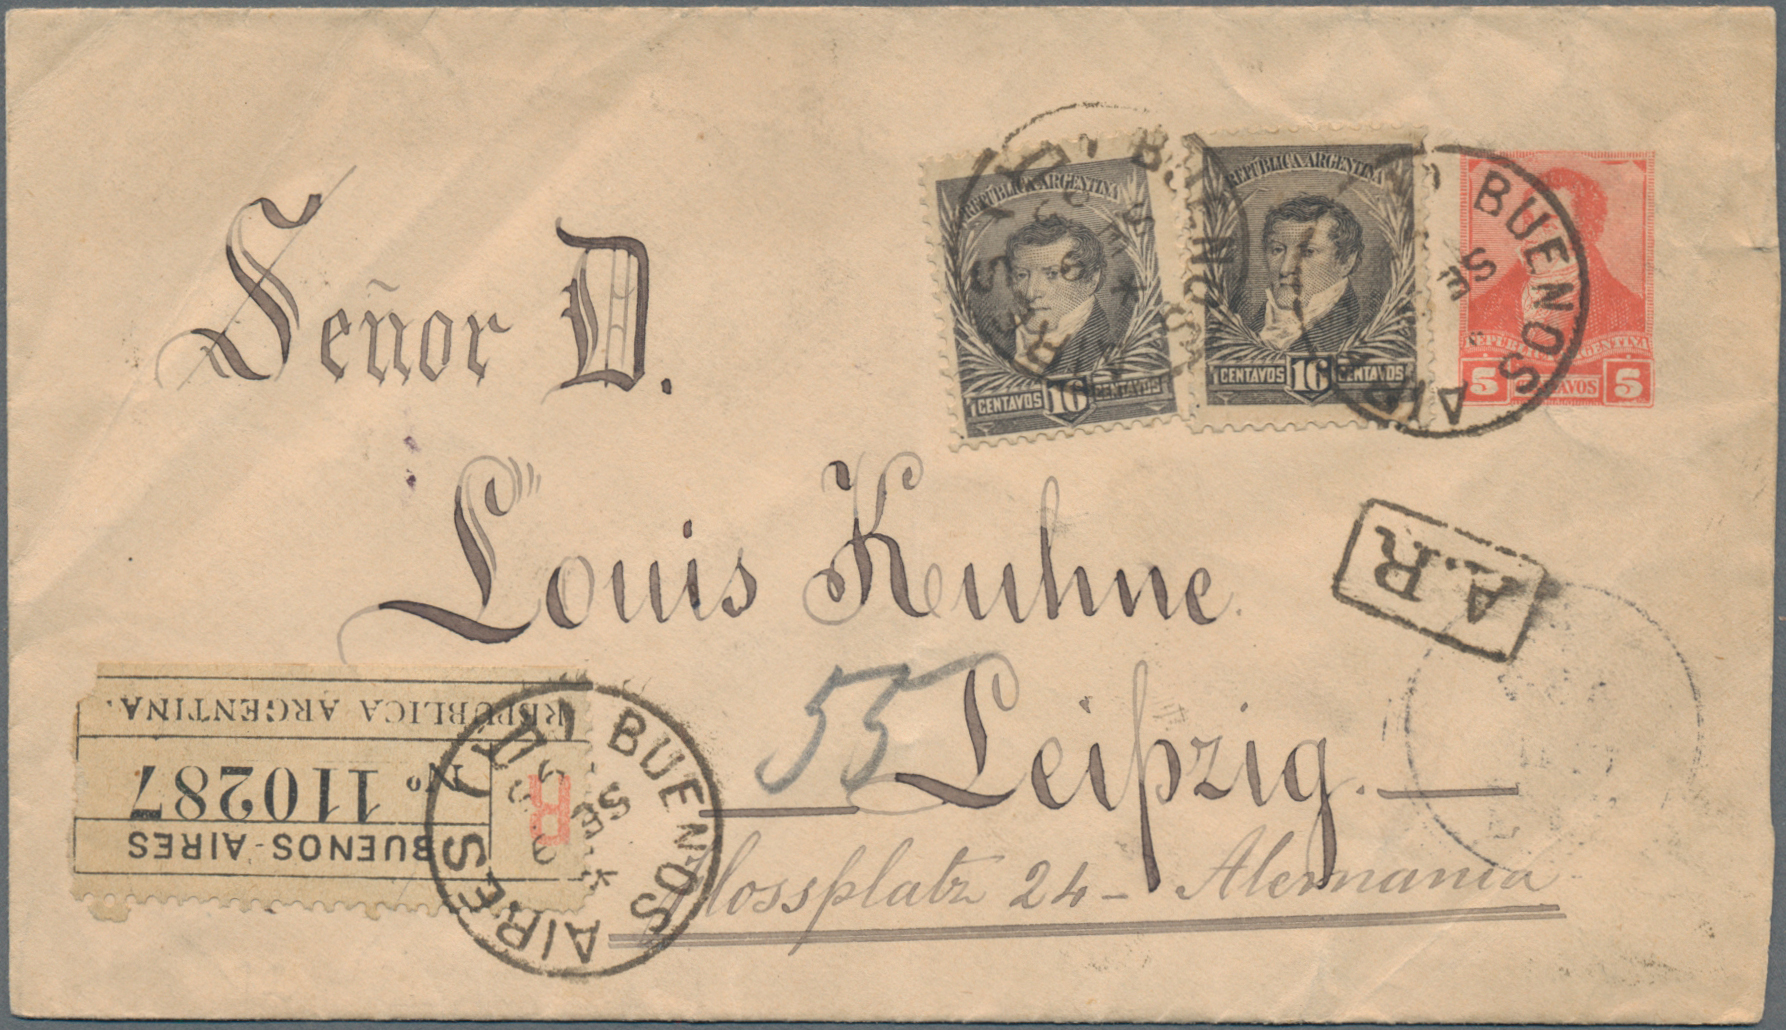 REPÚBLICA ARGENTINA
CENTAVOS 16 CENTAVOS
REPÚBLICA ARGENTINA
CENTAVOS 16 CENTAVOS
REPÚBLICA ARGENTINA
5 CENTAVOS 5
BUENOS AIRES
BUENOS AIRES
Señor D.
Louis Kuhne
A.R
55
Leipzig.
Flossplatz 24 - Alemania
REPUBLICA ARGENTINA.
Nº 110287
R
BUENOS-AIRES
BUENOS AIRES